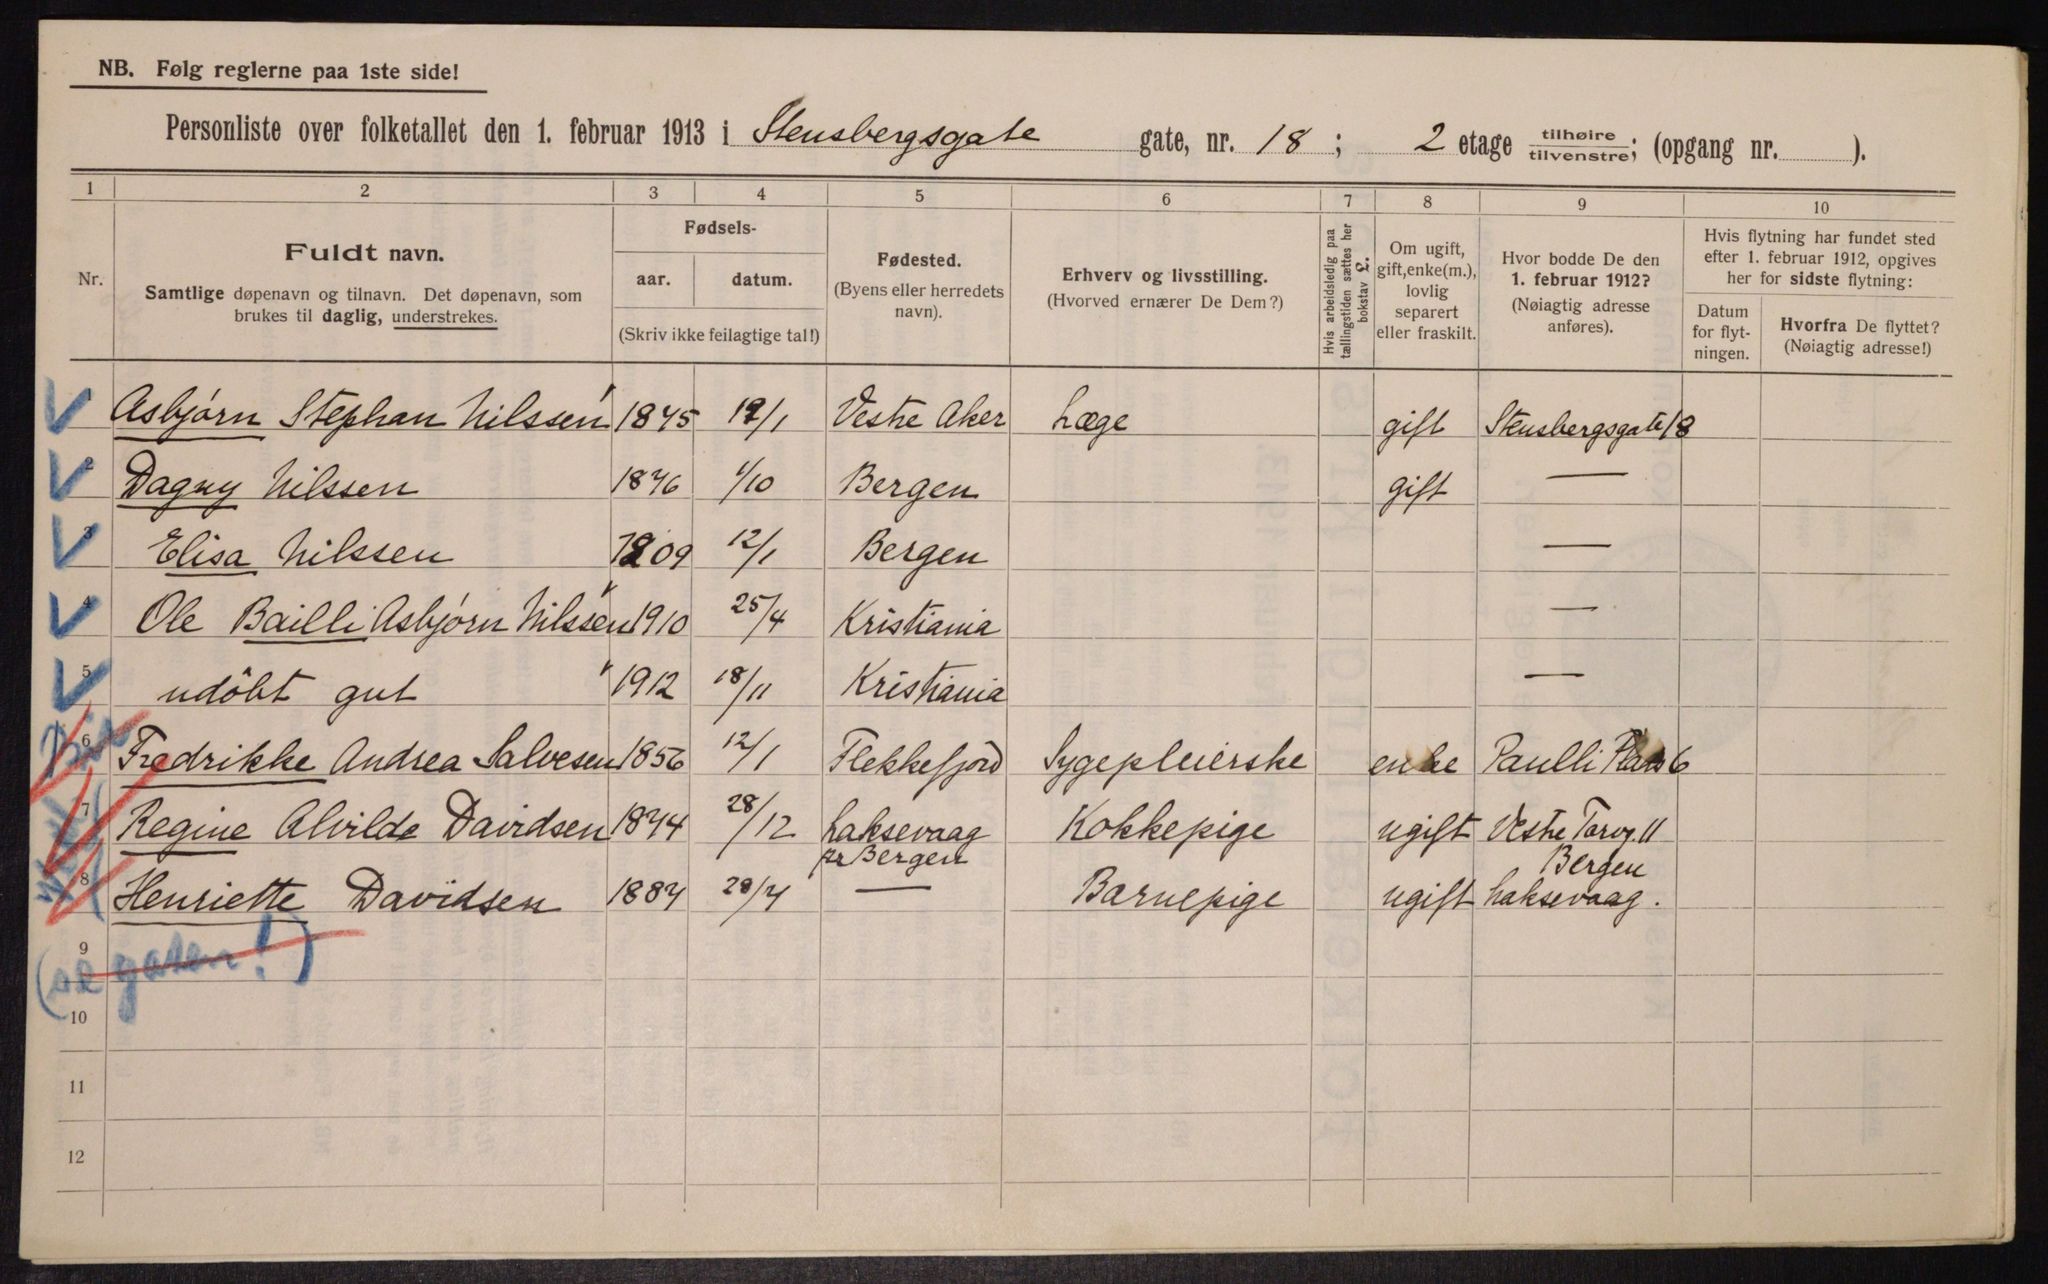 NB. Følg reglerne paa 1ste side!
Personliste over folketallet den 1. februar 1913 i Stensbergsgate gate, nr. 18; 2 etage tilhøire/tilvenstre; (opgang nr. ).
1 2 3 4 5 6 7 8 9 10
Nr.
Fuldt navn.
Samtlige døpenavn og tilnavn. Det døpenavn, som
brukes til daglig, understrekes.
Fødsels-
aar. datum.
(Skriv ikke feilagtige tal!)
Fødested.
(Byens eller herredets
navn).
Erhverv og livsstilling.
(Hvorved ernærer De Dem?)
Hvis arbeidsledig paa
tællingstiden sættes her
bokstav L.
Om ugift,
gift, enke(m.),
lovlig
separert
eller fraskilt.
Hvor bodde De den
1. februar 1912?
(Nøiagtig adresse
anføres).
Hvis flytning har fundet sted
efter 1. februar 1912, opgives
her for sidste flytning:
Datum
for flyt-
ningen.
Hvorfra De flyttet?
(Nøiagtig adresse!)
1 Asbjørn Stephan Nilssen 1875 12/1 Vestre Aker Læge gift Stensbergsgate 18
2 Dagny Nilssen 1876 1/10 Bergen gift —
3 Elisa Nilssen 1909 12/1 Bergen —
4 Ole Bailli Asbjørn Nilssen 1910 25/4 Kristiania —
5 udöbt gut 1912 18/11 Kristiania —
6 Fredrikke Andrea Salvesen 1856 12/1 Flekkefjord Sygepleierske enke Paulli Plads 6
7 Regine Alvilde Davidsen 1874 28/12 Laksevaag Kokkepige ugift Vestre Torvg. 11
pr Bergen Bergen
8 Henriette Davidsen 1887 28/7 — Barnepige ugift Laksevaag.
9
10
11
12